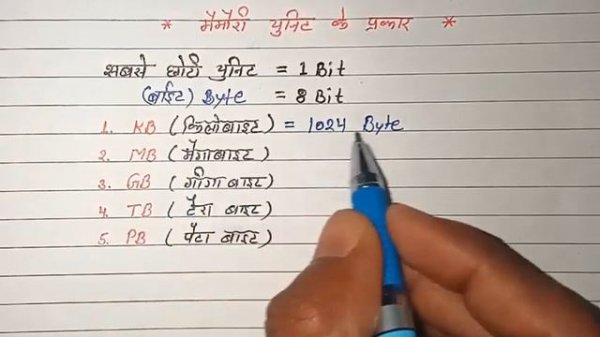 * मैमोरी युनिट के प्रकार *
सबसे छोटी युनिट = 1 Bit
(बाईट) Byte = 8 Bit
1. KB (किलोबाइट) = 1024 Byte
2. MB (मैगाबाइट)
3. GB (गीगाबाइट)
4. TB (टैरा बाइट)
5. PB (पेटा बाइट)